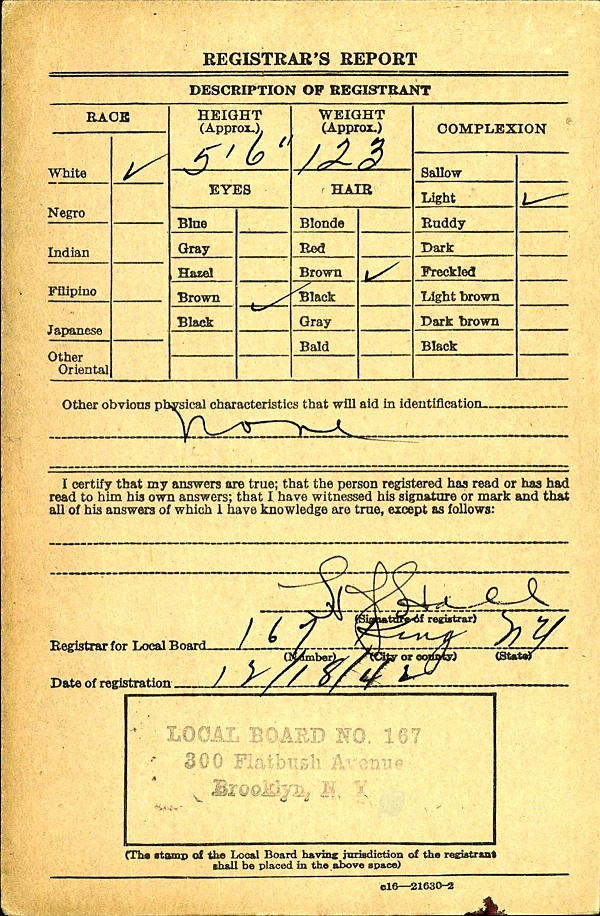 REGISTRAR'S REPORT
DESCRIPTION OF REGISTRANT
RACE
HEIGHT
(Approx.)
WEIGHT
(Approx.)
COMPLEXION
5'6"
123
White ✓
Negro
Indian
Filipino
Japanese
Other
Oriental
EYES
Blue
Gray
Hazel
Brown ✓
Black
HAIR
Blonde
Red
Brown ✓
Black
Gray
Bald
Sallow
Light ✓
Ruddy
Dark
Freckled
Light brown
Dark brown
Black
Other obvious physical characteristics that will aid in identification
None
I certify that my answers are true; that the person registered has read or has had
read to him his own answers; that I have witnessed his signature or mark and that
all of his answers of which I have knowledge are true, except as follows:
(Signature of registrar)
Registrar for Local Board 167 King NY
(Number) (City or county) (State)
Date of registration 12/18/42
LOCAL BOARD NO. 167
300 Flatbush Avenue
Brooklyn, N. Y.
(The stamp of the Local Board having jurisdiction of the registrant
shall be placed in the above space)
c16—21630-2